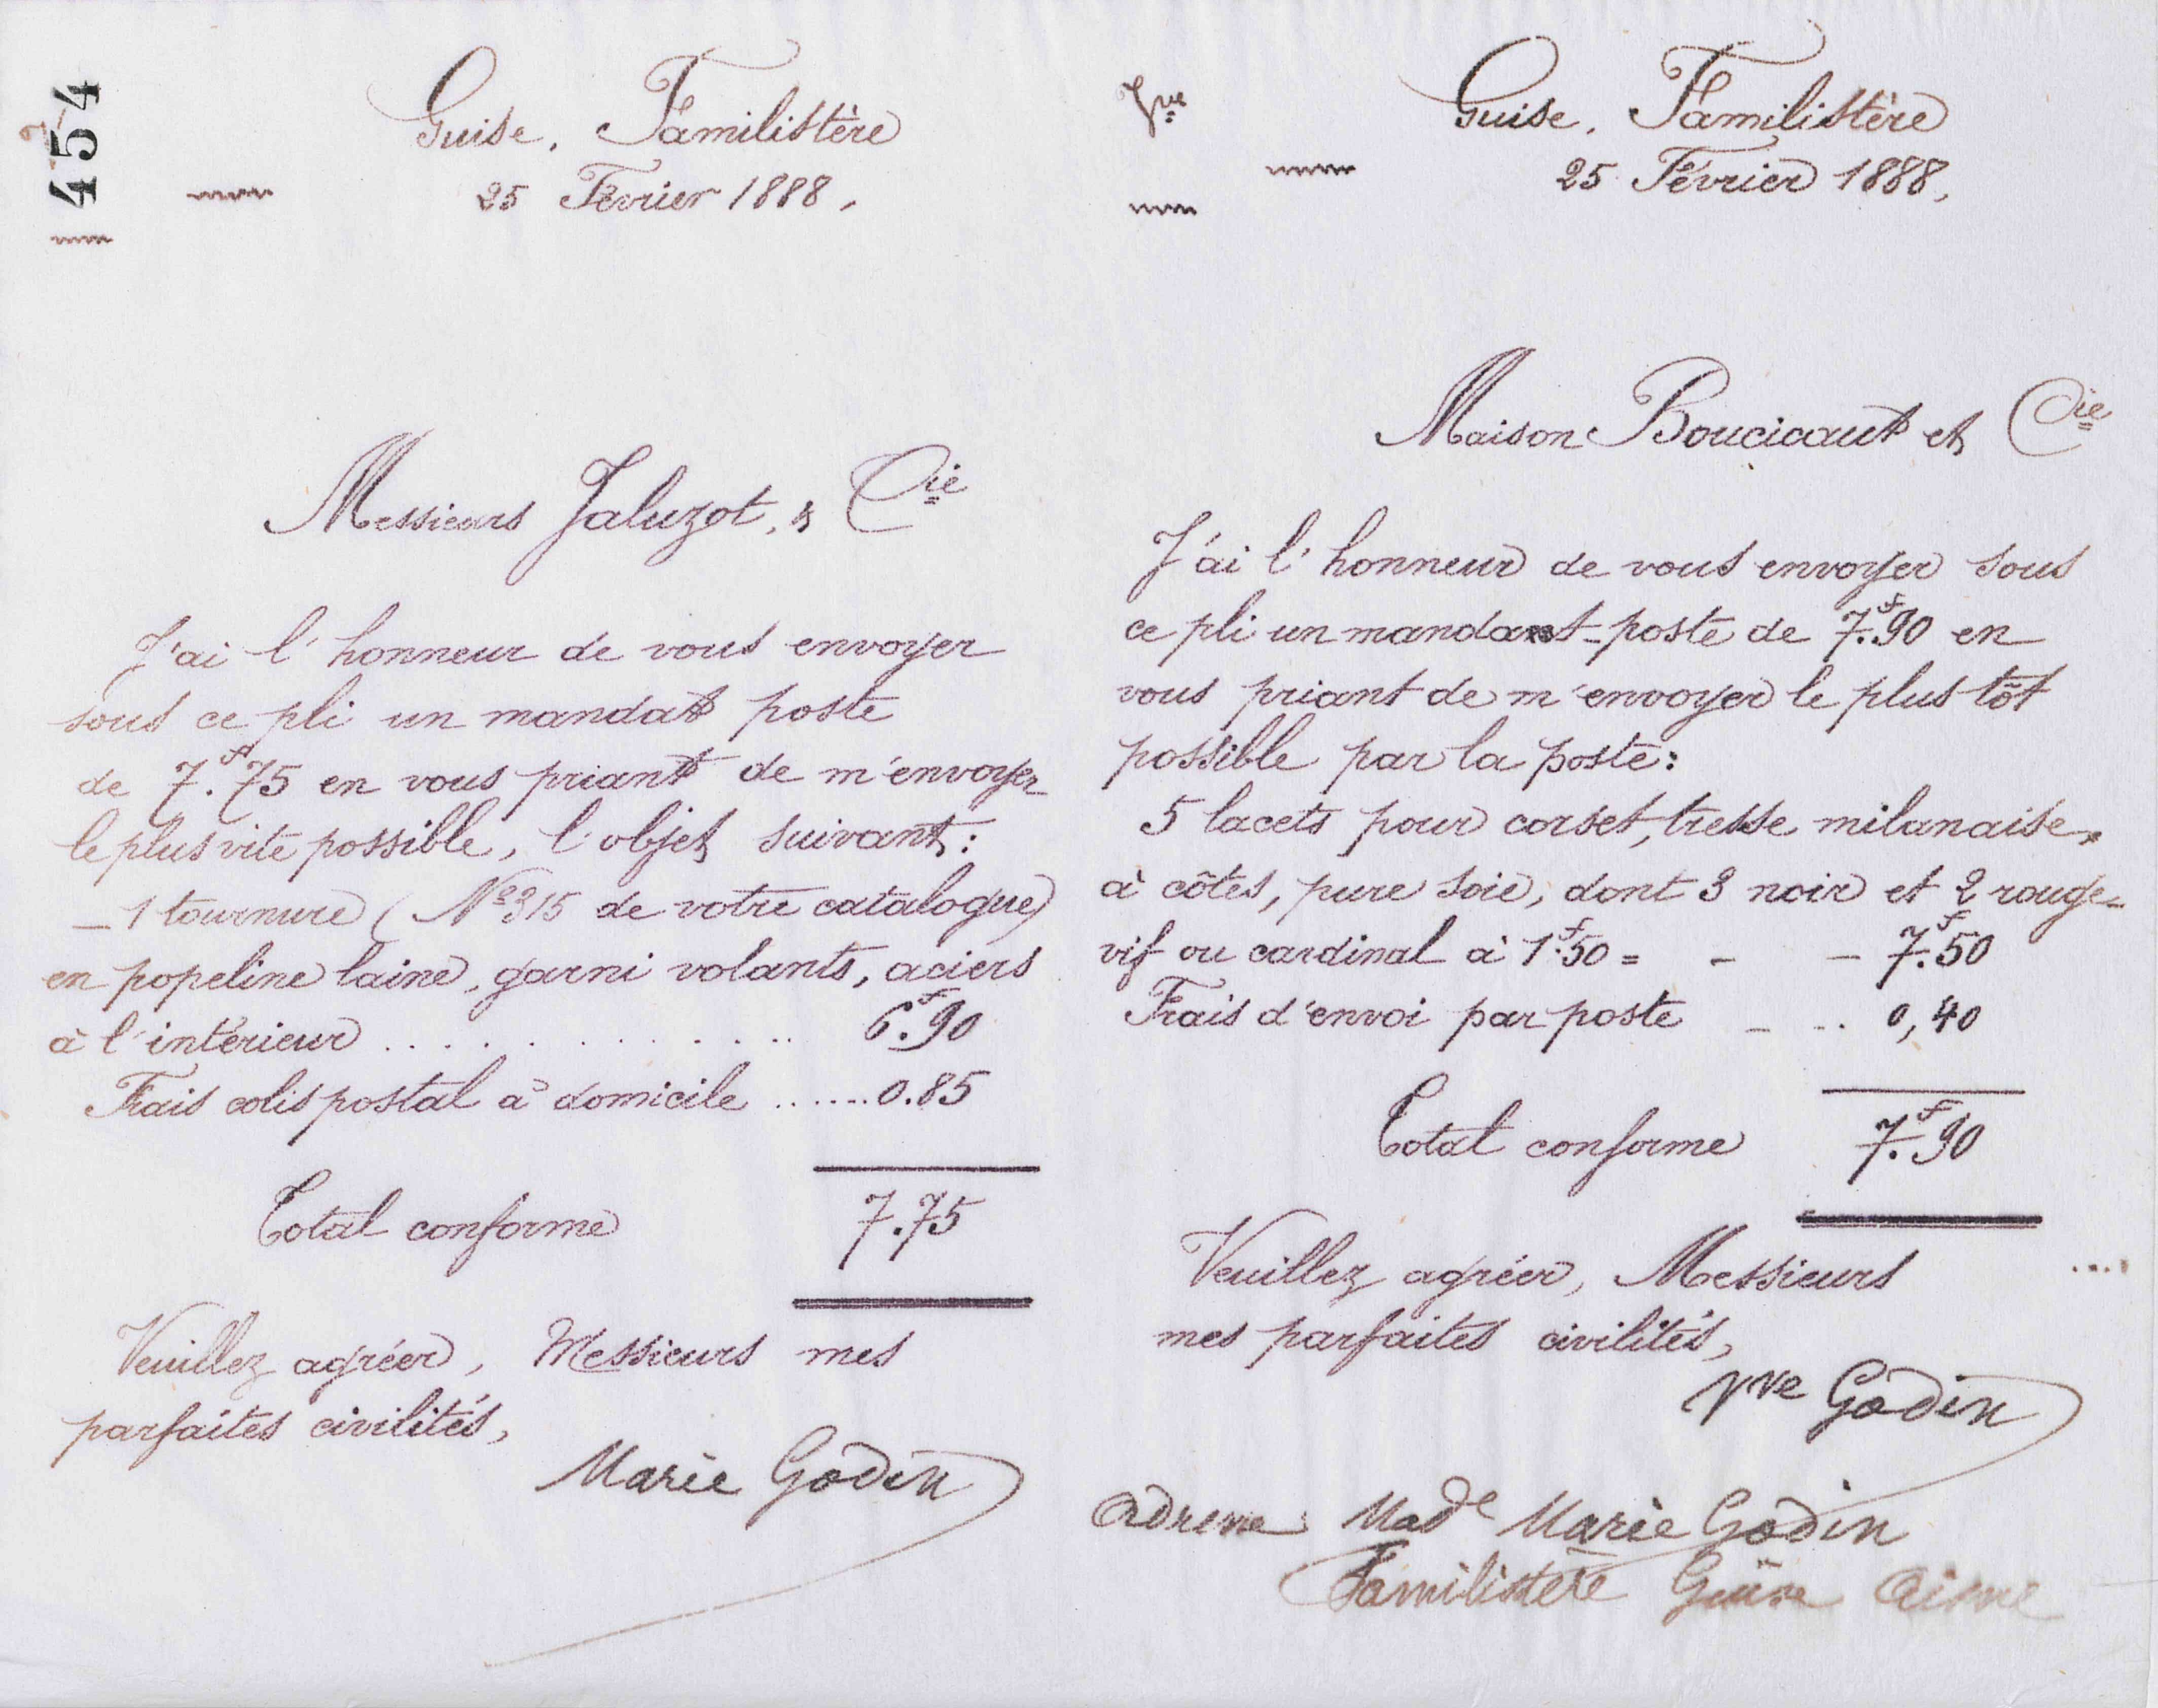 454
Guise. Familistère
25 Février 1888,
Messieurs Jaluzot, & Cie
J'ai l'honneur de vous envoyer
sous ce pli un mandat poste
de 7.f75 en vous priant de m'envoyer
le plus vite possible, l'objet suivant:
— 1 tournure (No 315 de votre catalogue)
en popeline laine, garni volants, aciers
à l'intérieur .................. 6.f90
Frais colis postal à domicile ....... 0.85
Total conforme 7.75
Veuillez agréer, Messieurs mes
parfaites civilités,
Marie Godin
Guise. Familistère
25 Février 1888,
Maison Boucicaut et Cie
J'ai l'honneur de vous envoyer sous
ce pli un mandat-poste de 7.f90 en
vous priant de m'envoyer le plus tôt
possible par la poste:
5 lacets pour corset, tresse milanaise,
à côtes, pure soie, dont 3 noir et 2 rouge-
vif ou cardinal à 1.f50 = - - 7.f50
Frais d'envoi par poste - .. 0,40
Total conforme 7.f90
Veuillez agréer, Messieurs
mes parfaites civilités,
Vve Godin
adresse Made Marie Godin
Familistère Guise Aisne